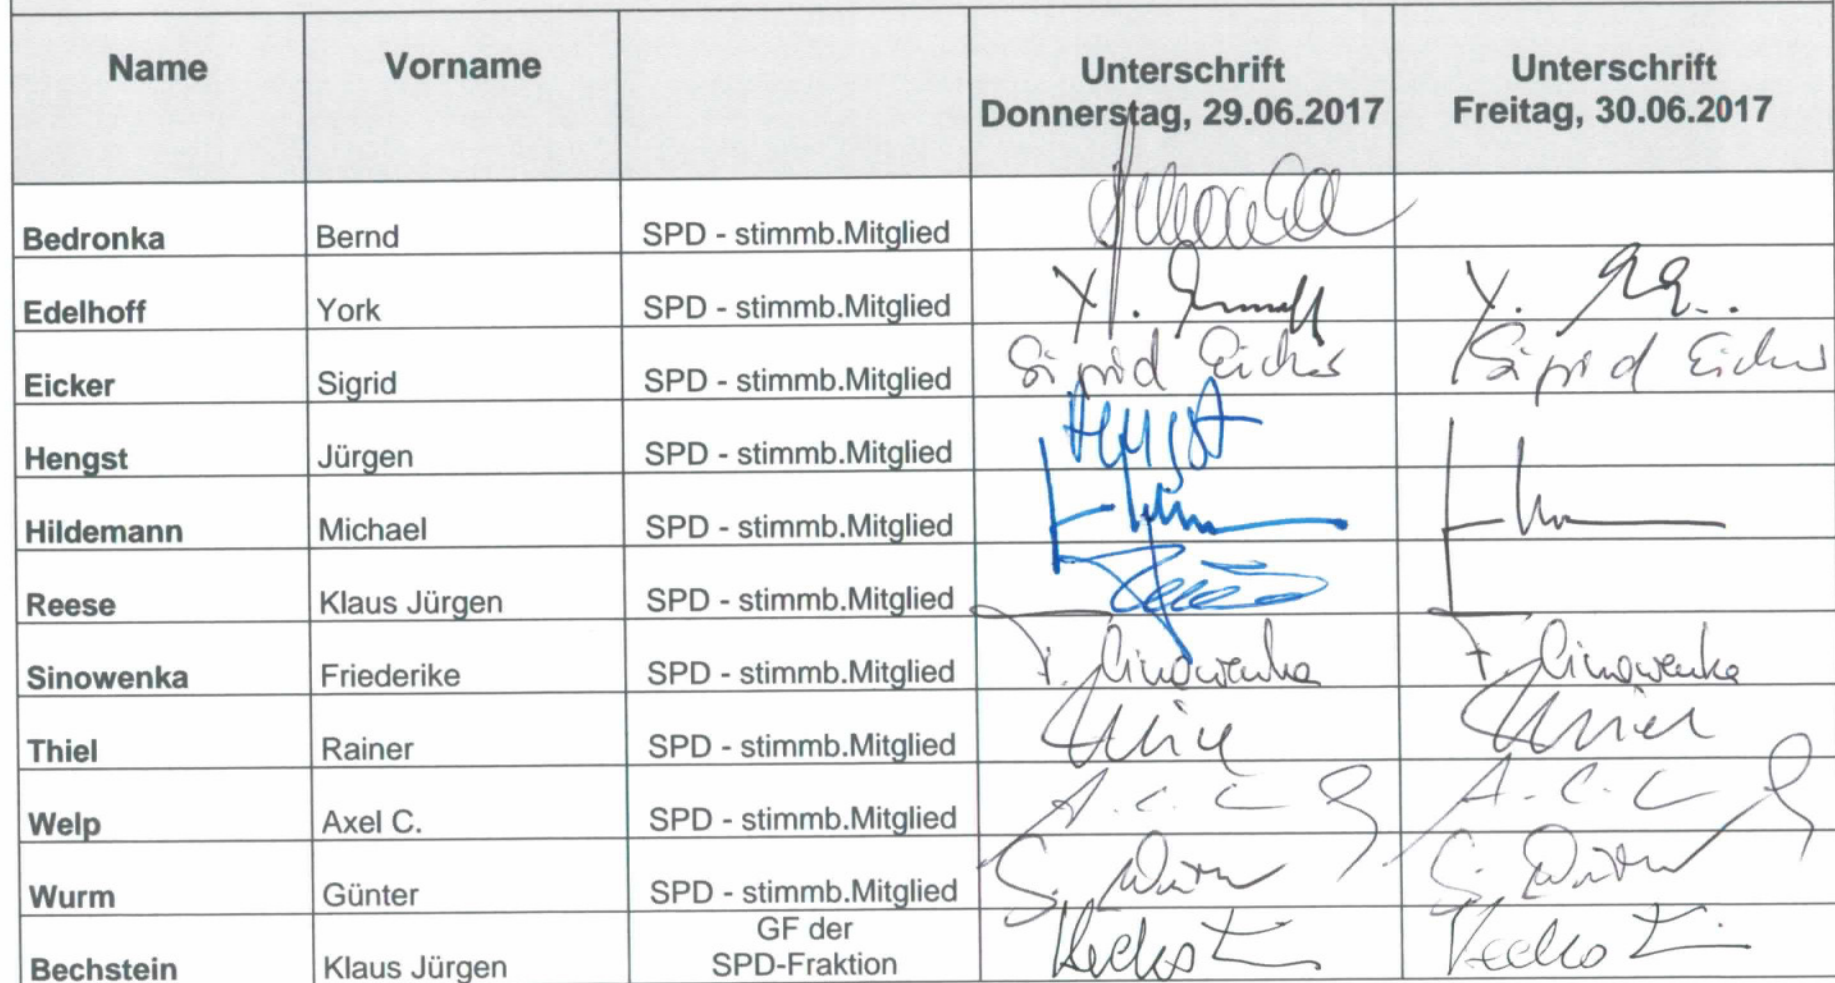 Name Vorname Unterschrift Donnerstag, 29.06.2017 Unterschrift Freitag, 30.06.2017
Bedronka Bernd SPD - stimmb.Mitglied
Edelhoff York SPD - stimmb.Mitglied Y. Y.
Eicker Sigrid SPD - stimmb.Mitglied Sigrid Eicker Sigrid Eicker
Hengst Jürgen SPD - stimmb.Mitglied Hengst
Hildemann Michael SPD - stimmb.Mitglied
Reese Klaus Jürgen SPD - stimmb.Mitglied
Sinowenka Friederike SPD - stimmb.Mitglied F. Sinowenka F. Sinowenka
Thiel Rainer SPD - stimmb.Mitglied Thiel Thiel
Welp Axel C. SPD - stimmb.Mitglied A. C. A. C.
Wurm Günter SPD - stimmb.Mitglied G. Wurm G. Wurm
Bechstein Klaus Jürgen GF der SPD-Fraktion